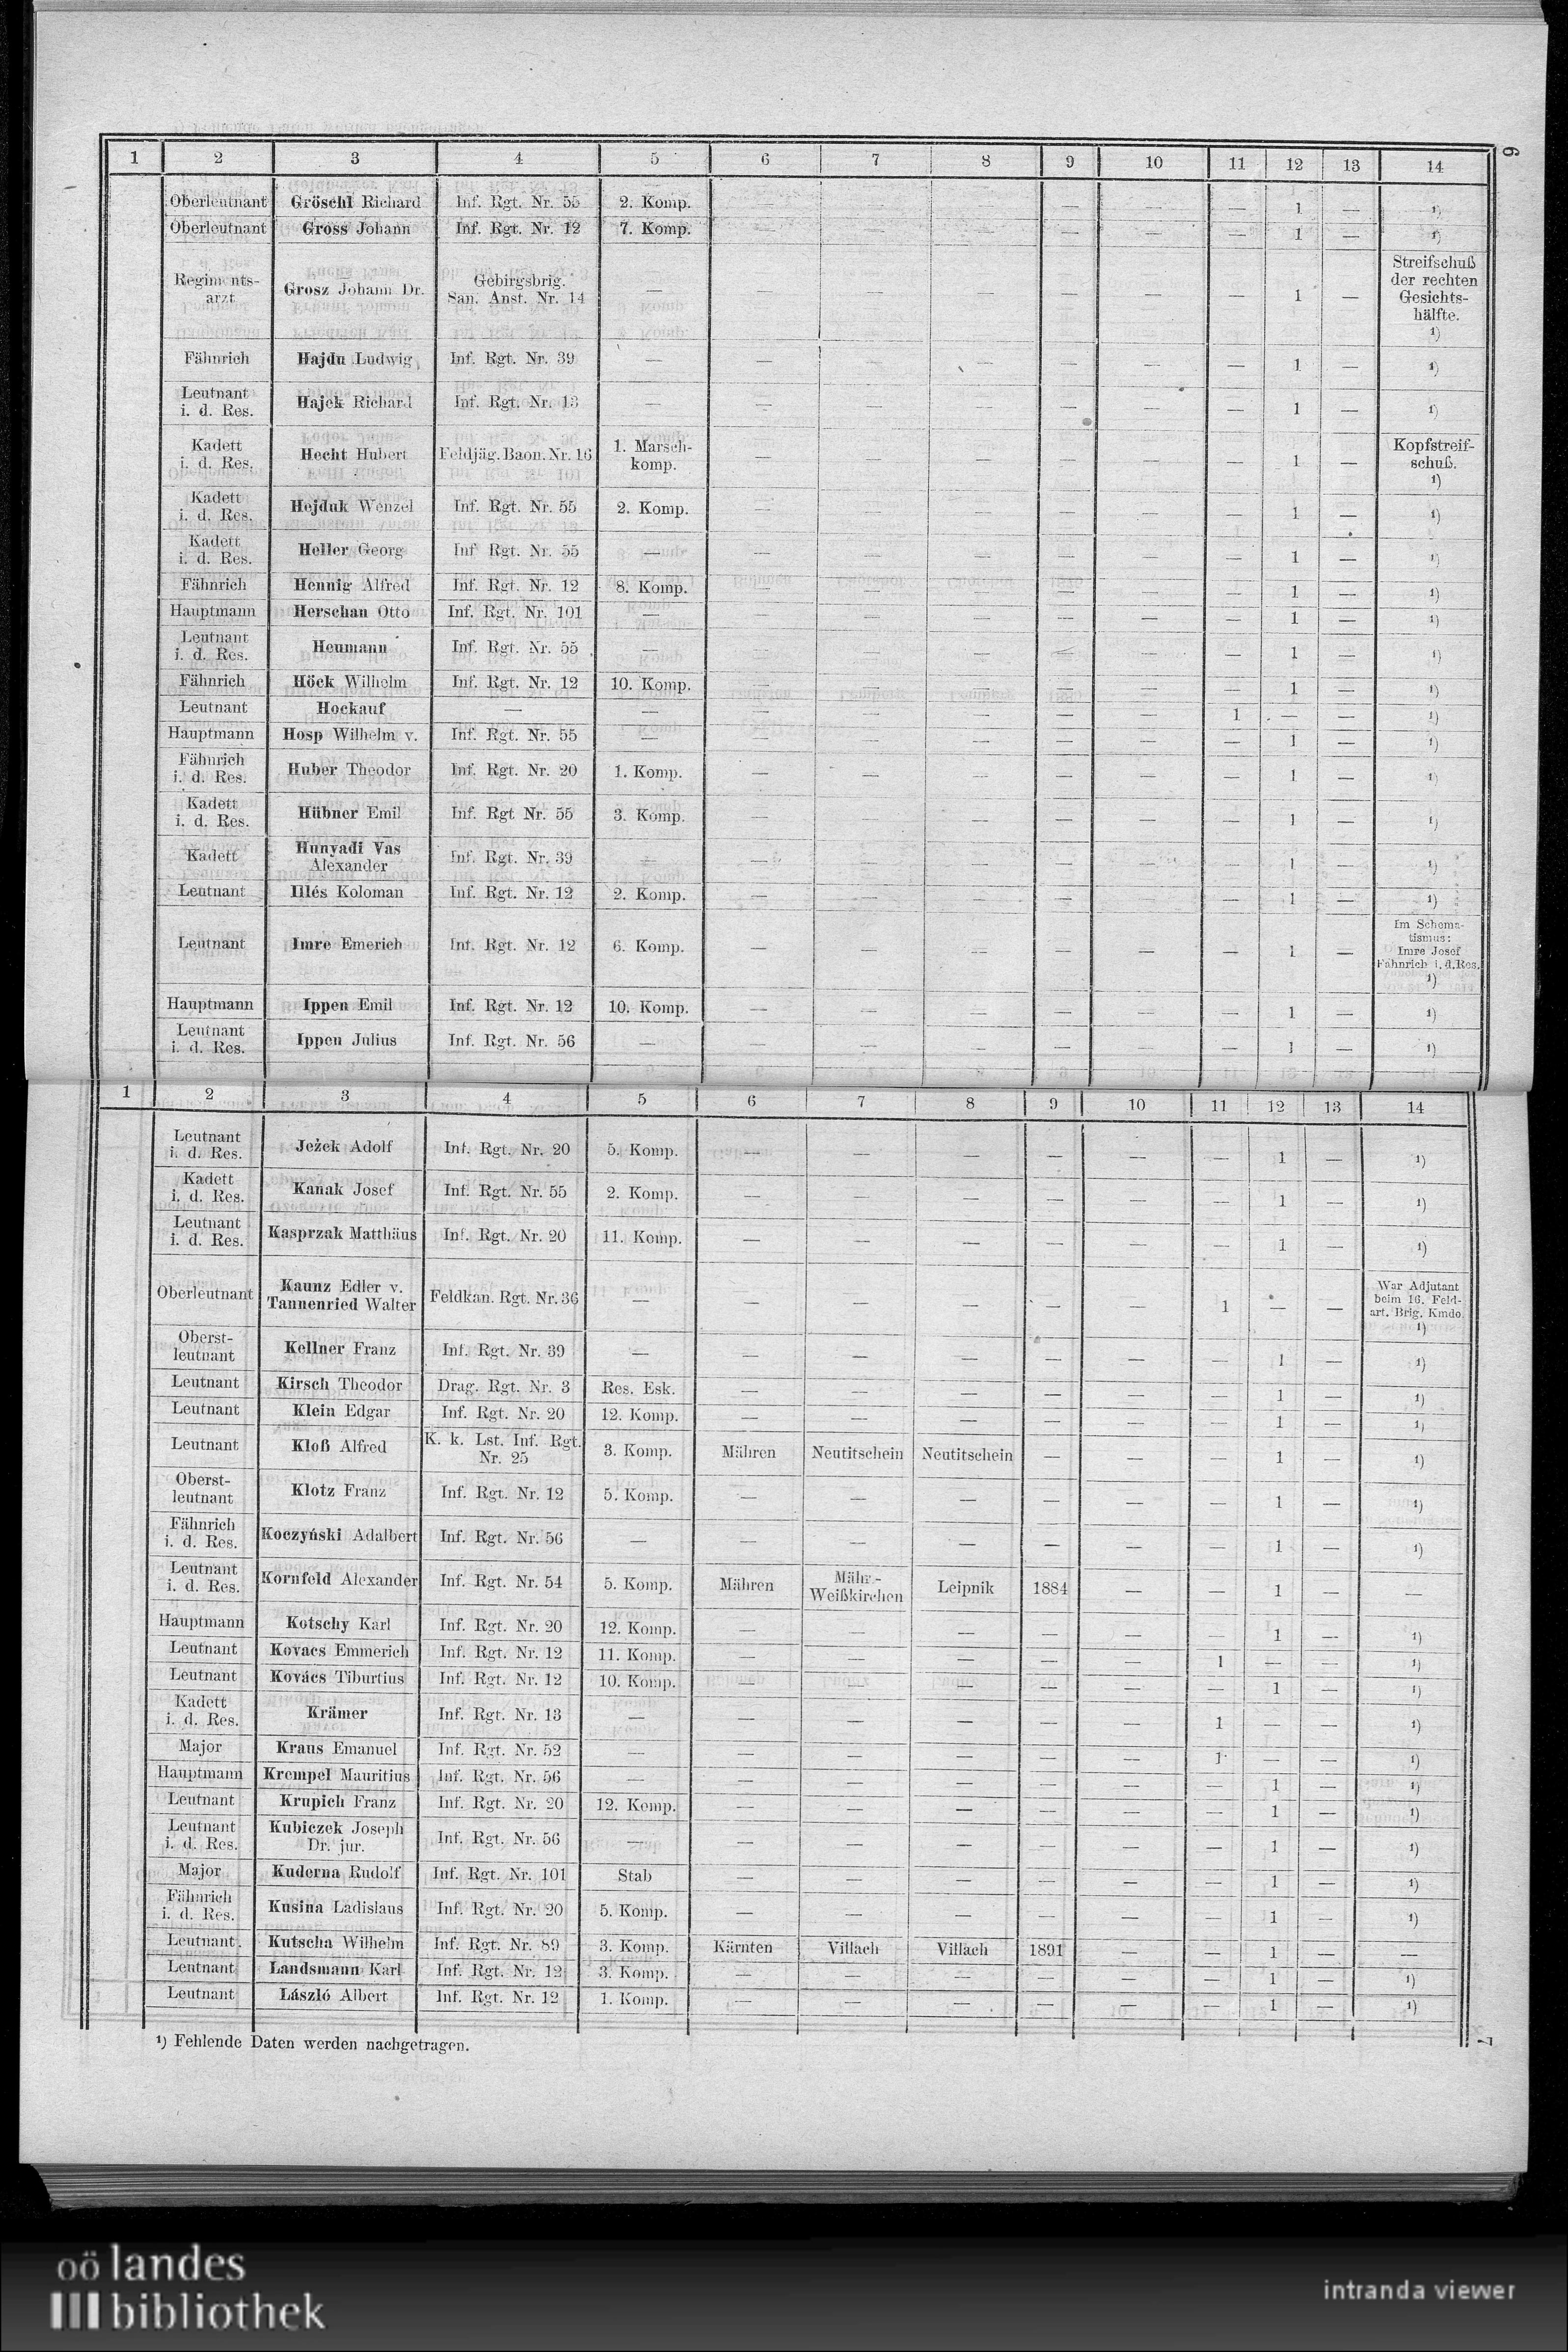 6
1 2 3 4 5 6 7 8 9 10 11 12 13 14
Oberleutnant Gröschl Richard Inf. Rgt. Nr. 55 2. Komp. — — — — — — 1 — ¹)
Oberleutnant Gross Johann Inf. Rgt. Nr. 12 7. Komp. — — — — — — 1 — ¹)
Regiments-
arzt Grosz Johann Dr. Gebirgsbrig.
San. Anst. Nr. 14 — — — — — — — 1 — Streifschuß
der rechten
Gesichts-
hälfte.
¹)
Fähnrich Hajdu Ludwig Inf. Rgt. Nr. 39 — — — — — — — 1 — ¹)
Leutnant
i. d. Res. Hajek Richard Inf. Rgt. Nr. 13 — — — — — — — 1 — ¹)
Kadett
i. d. Res. Hecht Hubert Feldjäg. Baon. Nr. 16 1. Marsch-
komp. — — — — — — 1 — Kopfstreif-
schuß.
¹)
Kadett
i. d. Res. Hejduk Wenzel Inf. Rgt. Nr. 55 2. Komp. — — — — — — 1 — ¹)
Kadett
i. d. Res. Heller Georg Inf Rgt. Nr. 55 — — — — — — — 1 — ¹)
Fähnrich Hennig Alfred Inf. Rgt. Nr. 12 8. Komp. — — — — — — 1 — ¹)
Hauptmann Herschan Otto Inf. Rgt. Nr. 101 — — — — — — — 1 — ¹)
Leutnant
i. d. Res. Heumann Inf. Rgt. Nr. 55 — — — — — — — 1 — ¹)
Fähnrich Höck Wilhelm Inf. Rgt. Nr. 12 10. Komp. — — — — — — 1 — ¹)
Leutnant Hockauf — — — — — — — 1 — — ¹)
Hauptmann Hosp Wilhelm v. Inf. Rgt. Nr. 55 — — — — — — — 1 — ¹)
Fähnrich
i. d. Res. Huber Theodor Inf. Rgt. Nr. 20 1. Komp. — — — — — — 1 — ¹)
Kadett
i. d. Res. Hübner Emil Inf. Rgt Nr. 55 3. Komp. — — — — — — 1 — ¹)
Kadett Hunyadi Vas
Alexander Inf. Rgt. Nr. 39 — — — — — — — 1 — ¹)
Leutnant Illés Koloman Inf. Rgt. Nr. 12 2. Komp. — — — — — — 1 — ¹)
Leutnant Imre Emerich Inf. Rgt. Nr. 12 6. Komp. — — — — — — 1 — Im Schema-
tismus:
Imre Josef
Fähnrich i. d. Res.
¹)
Hauptmann Ippen Emil Inf. Rgt. Nr. 12 10. Komp. — — — — — — 1 — ¹)
Leutnant
i. d. Res. Ippen Julius Inf. Rgt. Nr. 56 — — — — — — — 1 — ¹)
1 2 3 4 5 6 7 8 9 10 11 12 13 14
Leutnant
i. d. Res. Ježek Adolf Inf. Rgt. Nr. 20 5. Komp. — — — — — — 1 — ¹)
Kadett
i. d. Res. Kanak Josef Inf. Rgt. Nr. 55 2. Komp. — — — — — — 1 — ¹)
Leutnant
i. d. Res. Kasprzak Matthäus Inf. Rgt. Nr. 20 11. Komp. — — — — — — 1 — ¹)
Oberleutnant Kaunz Edler v.
Tannenried Walter Feldkan. Rgt. Nr. 36 — — — — — — 1 — — War Adjutant
beim 16. Feld-
art. Brig. Kmdo.
¹)
Oberst-
leutnant Kellner Franz Inf. Rgt. Nr. 39 — — — — — — — 1 — ¹)
Leutnant Kirsch Theodor Drag. Rgt. Nr. 3 Res. Esk. — — — — — — 1 — ¹)
Leutnant Klein Edgar Inf. Rgt. Nr. 20 12. Komp. — — — — — — 1 — ¹)
Leutnant Kloß Alfred K. k. Lst. Inf. Rgt.
Nr. 25 3. Komp. Mähren Neutitschein Neutitschein — — — 1 — ¹)
Oberst-
leutnant Klotz Franz Inf. Rgt. Nr. 12 5. Komp. — — — — — — 1 — ¹)
Fähnrich
i. d. Res. Koczyński Adalbert Inf. Rgt. Nr. 56 — — — — — — — 1 — ¹)
Leutnant
i. d. Res. Kornfeld Alexander Inf. Rgt. Nr. 54 5. Komp. Mähren Mähr.-
Weißkirchen Leipnik 1884 — — 1 — —
Hauptmann Kotschy Karl Inf. Rgt. Nr. 20 12. Komp. — — — — — — 1 — ¹)
Leutnant Kovacs Emmerich Inf. Rgt. Nr. 12 11. Komp. — — — — — 1 — — ¹)
Leutnant Kovács Tiburtius Inf. Rgt. Nr. 12 10. Komp. — — — — — — 1 — ¹)
Kadett
i. d. Res. Krämer Inf. Rgt. Nr. 13 — — — — — — 1 — — ¹)
Major Kraus Emanuel Inf. Rgt. Nr. 52 — — — — — — 1 — — ¹)
Hauptmann Krempel Mauritius Inf. Rgt. Nr. 56 — — — — — — — 1 — ¹)
Leutnant Krupich Franz Inf. Rgt. Nr. 20 12. Komp. — — — — — — 1 — ¹)
Leutnant
i. d. Res. Kubiczek Joseph
Dr. jur. Inf. Rgt. Nr. 56 — — — — — — — 1 — ¹)
Major Kuderna Rudolf Inf. Rgt. Nr. 101 Stab — — — — — — 1 — ¹)
Fähnrich
i. d. Res. Kusina Ladislaus Inf. Rgt. Nr. 20 5. Komp. — — — — — — 1 — ¹)
Leutnant Kutscha Wilhelm Inf. Rgt. Nr. 89 3. Komp. Kärnten Villach Villach 1891 — — 1 — —
Leutnant Landsmann Karl Inf. Rgt. Nr. 12 3. Komp. — — — — — — 1 — ¹)
Leutnant László Albert Inf. Rgt. Nr. 12 1. Komp. — — — — — — 1 — ¹)
¹) Fehlende Daten werden nachgetragen.
7
oö landes
bibliothek
intranda viewer